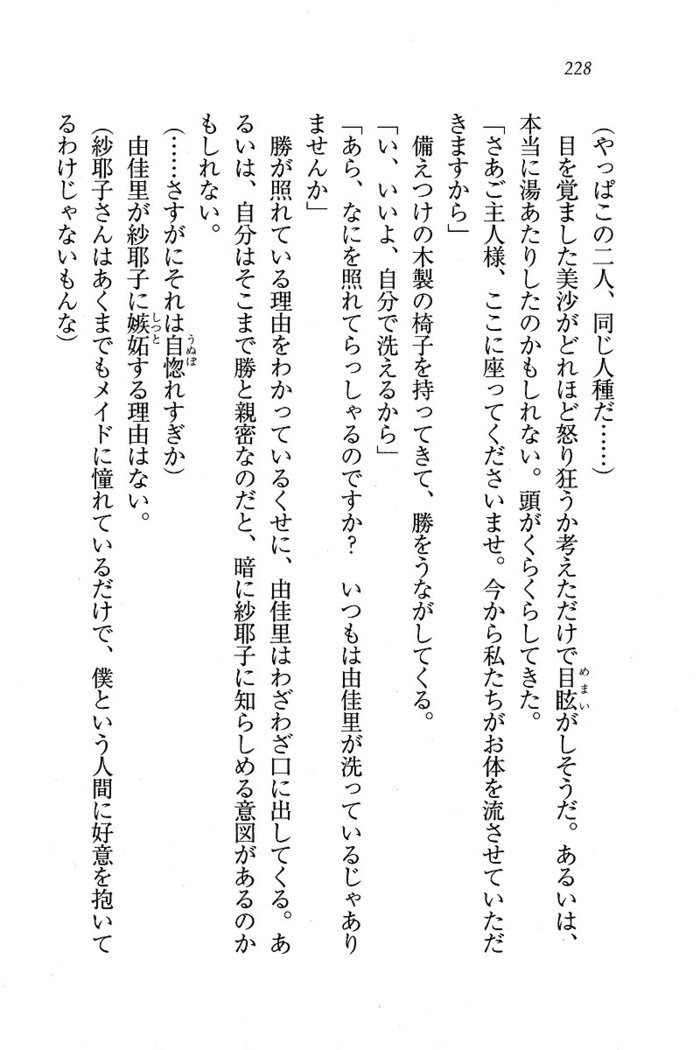 228
(やっぱこの二人、同じ人種だ……)
目を覚ました美沙がどれほど怒り狂うか考えただけで目眩がしそうだ。あるいは、
本当に湯あたりしたのかもしれない。頭がくらくらしてきた。
「さあご主人様、ここに座ってくださいませ。今から私たちがお体を流させていただ
きますから」
備えつけの木製の椅子を持ってきて、勝をうながしてくる。
「い、いいよ、自分で洗えるから」
「あら、なにを照れてらっしゃるのですか? いつもは由佳里が洗っているじゃあり
ませんか」
勝が照れている理由をわかっているくせに、由佳里はわざわざ口に出してくる。あ
るいは、自分はそこまで勝と親密なのだと、暗に紗耶子に知らしめる意図があるのか
もしれない。
(……さすがにそれは自惚れすぎか)
由佳里が紗耶子に嫉妬する理由はない。
(紗耶子さんはあくまでもメイドに憧れているだけで、僕という人間に好意を抱いて
るわけじゃないもんな)
めまい
うぬぼ
しつと